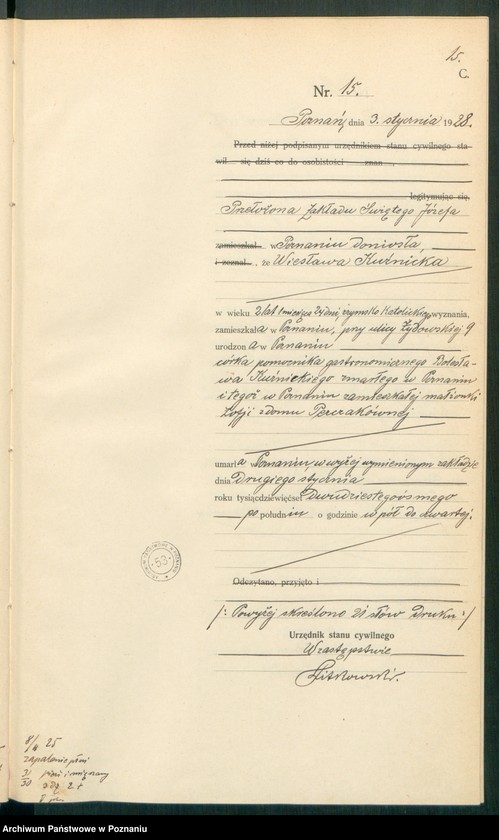 15.
C.
Nr. 15.
Poznań, dnia 3. stycznia 1928.
Przed niżej podpisanym urzędnikiem stanu cywilnego sta-
wił się dziś co do osobistości znan
legitymując się,
Przełożona Zakładu Świętego Józefa
zamieszkał w Poznaniu doniosła,
i zeznał , że Wiesława Kuźnicka
w wieku 2 lat 1 miesiąc 24 dni, rzymsko katolickiego wyznania,
zamieszkała w Poznaniu, przy ulicy Żydowskiej 9
urodzona w Poznaniu
córka pomocnika gastronomicznego Bolesła-
wa Kuźnickiego zmarłego w Poznaniu
i tegoż w Poznaniu zamieszkałej małżonki
Zofji z domu
umarła w Poznaniu, w wyżej wymienionym zakładzie
dnia Drugiego stycznia
roku tysiącdziewięćset dwudziestegoósmego
po południu o godzinie w pół do czwartej.
Odczytano, przyjęto i
/: Powyżej skreślono 21 słów druku :/
Urzędnik stanu cywilnego
W zastępstwie
53
8/4 25
zapalenie płuc
31
30
Archiwum Państwowe w Poznaniu